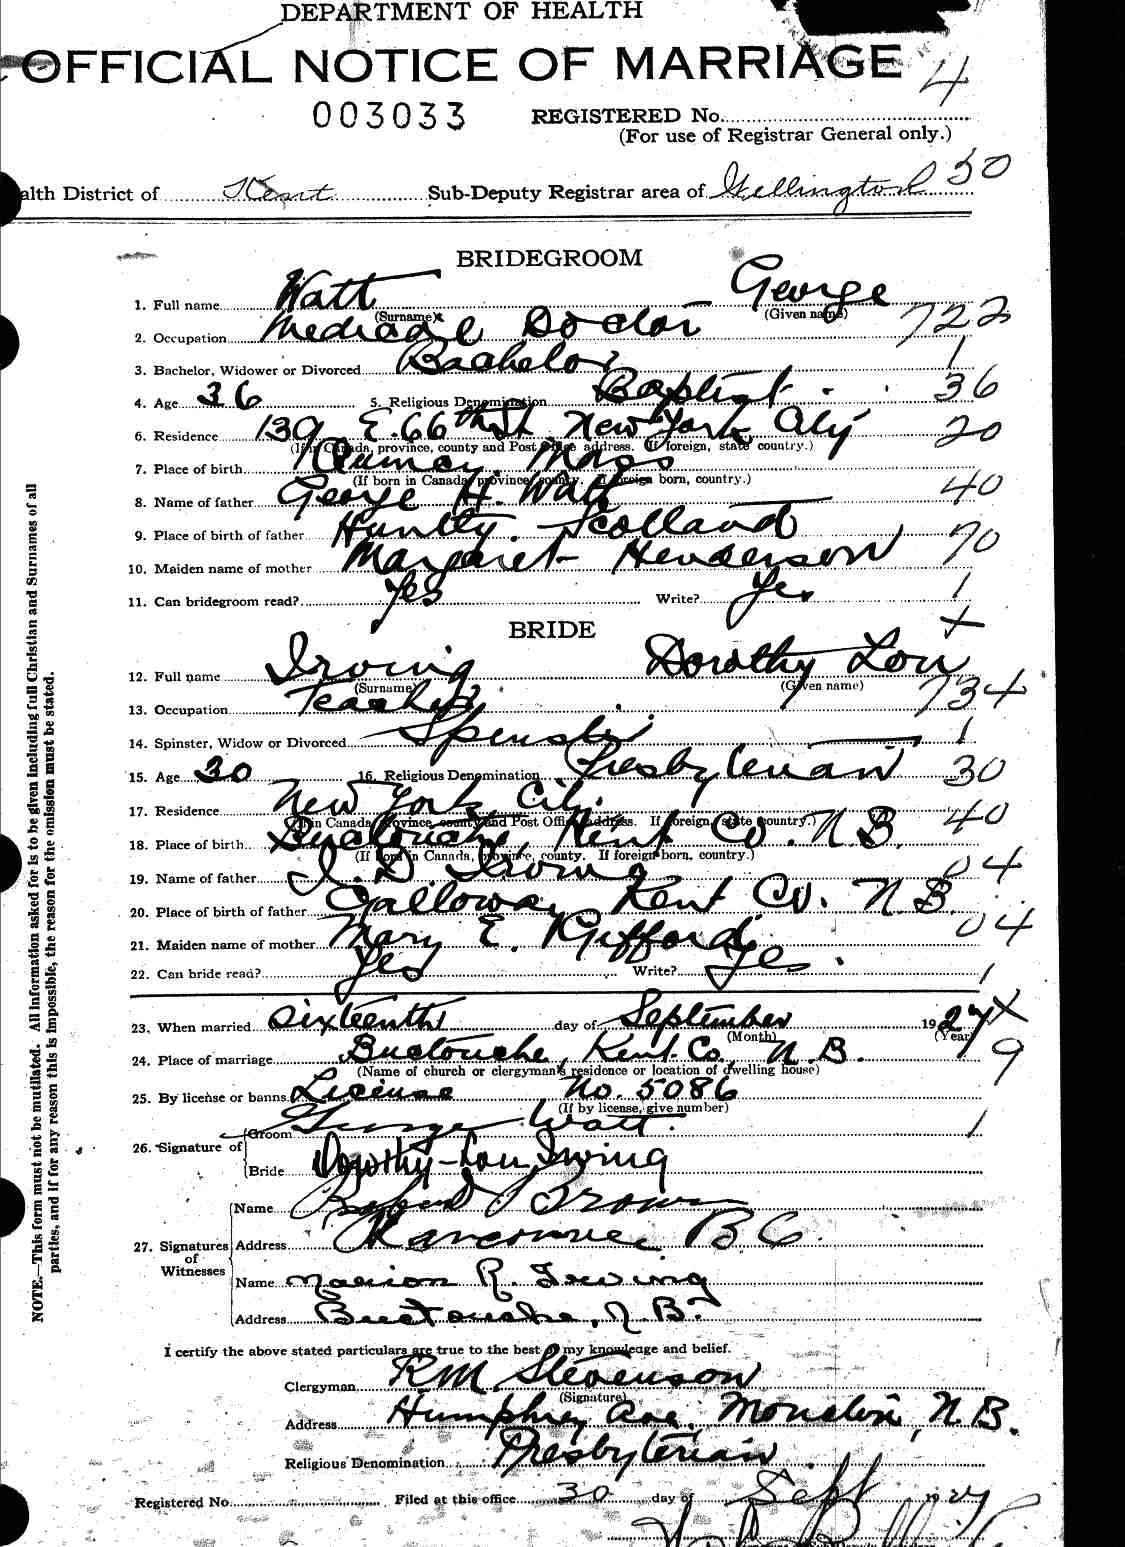 DEPARTMENT OF HEALTH
OFFICIAL NOTICE OF MARRIAGE 4
003033 REGISTERED No.
(For use of Registrar General only.)
alth District of Kent Sub-Deputy Registrar area of Wellington 50
BRIDEGROOM
1. Full name Watt George
(Surname) (Given name)
2. Occupation Medical Doctor 722
3. Bachelor, Widower or Divorced Bachelor 1
4. Age 36 5. Religious Denomination Baptist 36
6. Residence 139 E. 66th St New York City 20
(If in Canada, province, county and Post Office address. If foreign, state country.)
7. Place of birth Quincy, Mass
(If born in Canada, province, county. If foreign born, country.) 40
8. Name of father George H. Watt
9. Place of birth of father Huntly, Scotland 70
10. Maiden name of mother Margaret Henderson
11. Can bridegroom read? Yes Write? Yes 1
BRIDE
12. Full name Irving Dorothy Lou
(Surname) (Given name) 734
13. Occupation Teacher
14. Spinster, Widow or Divorced Spinster 1
15. Age 30 16. Religious Denomination Presbyterian 30
17. Residence New York City 40
(If in Canada, province, county and Post Office address. If foreign, state country.)
18. Place of birth Buctouche Kent Co. N.B.
(If born in Canada, province, county. If foreign born, country.)
19. Name of father J. D. Irving 04
20. Place of birth of father Galloway Kent Co. N.B.
21. Maiden name of mother Mary E. Gifford 04
22. Can bride read? Yes Write? Yes 1
23. When married sixteenth day of September 1927
(Month) (Year)
24. Place of marriage Buctouche, Kent Co, N.B. 9
(Name of church or clergyman's residence or location of dwelling house)
25. By license or banns License No. 5086
(If by license, give number)
26. Signature of Groom George Watt 1
Bride Dorothy-Lou Irving
27. Signatures of Witnesses
Name Brown
Address Vancouver B C.
Name Marion R. Irving
Address Buctouche, N.B.
I certify the above stated particulars are true to the best of my knowledge and belief.
Clergyman R M Stevenson
(Signature)
Address Humphrey Ave, Moncton, N.B.
Religious Denomination Presbyterian
Registered No. Filed at this office 30 day of Sept 1927
NOTE.—This form must not be mutilated. All information asked for is to be given including full Christian and Surnames of all
parties, and if for any reason this is impossible, the reason for the omission must be stated.